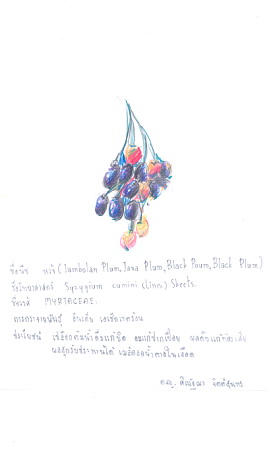 ชื่อพืช หว้า (Jambolan Plum, Java Plum, Black Poum, Black Plum)
ชื่อวิทยาศาสตร์ Syzygium cumini (Linn.) Skeels.
ชื่อวงศ์ MYRTACEAE.
การกระจายพันธุ์ อินเดีย เอเชียเขตร้อน
ประโยชน์ เปลือกต้นต้มแก้บิด อมแก้ปากเปื่อย ผลดิบแก้ท้องเสีย
ผลสุกรับประทานได้ เมล็ดลดน้ำตาลในเลือด
ด.ญ.